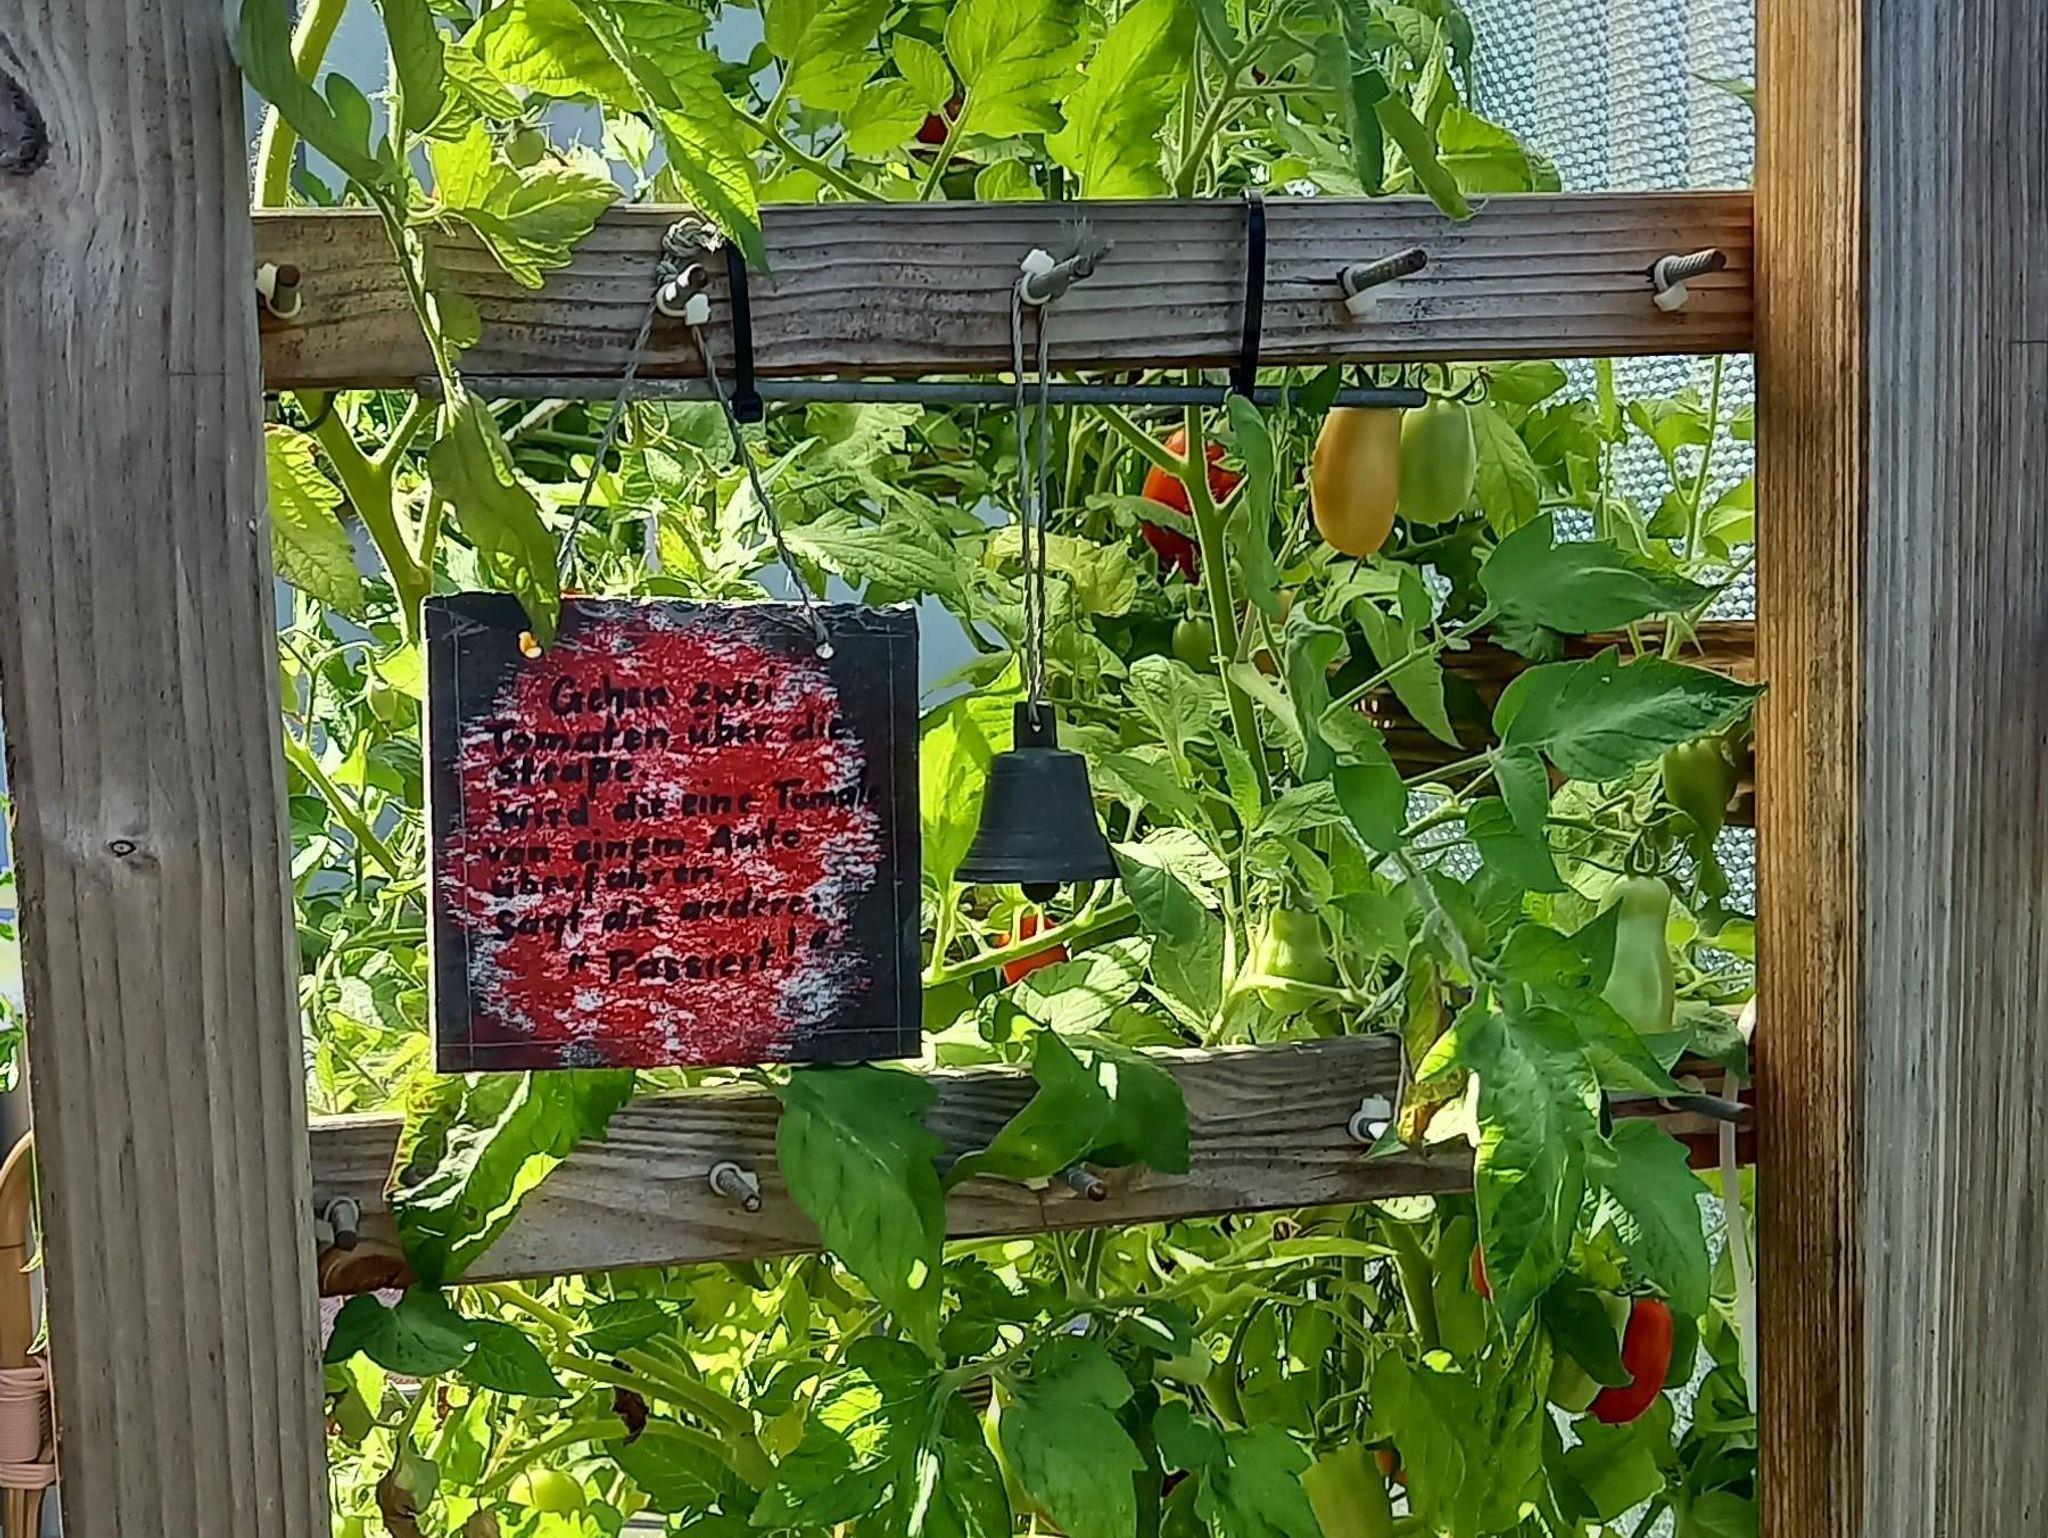 Gehen zwei
Tomaten über die
Straße.
Wird die eine Tomate
von einem Auto
überfahren.
Sagt die andere:
"Passiert!"